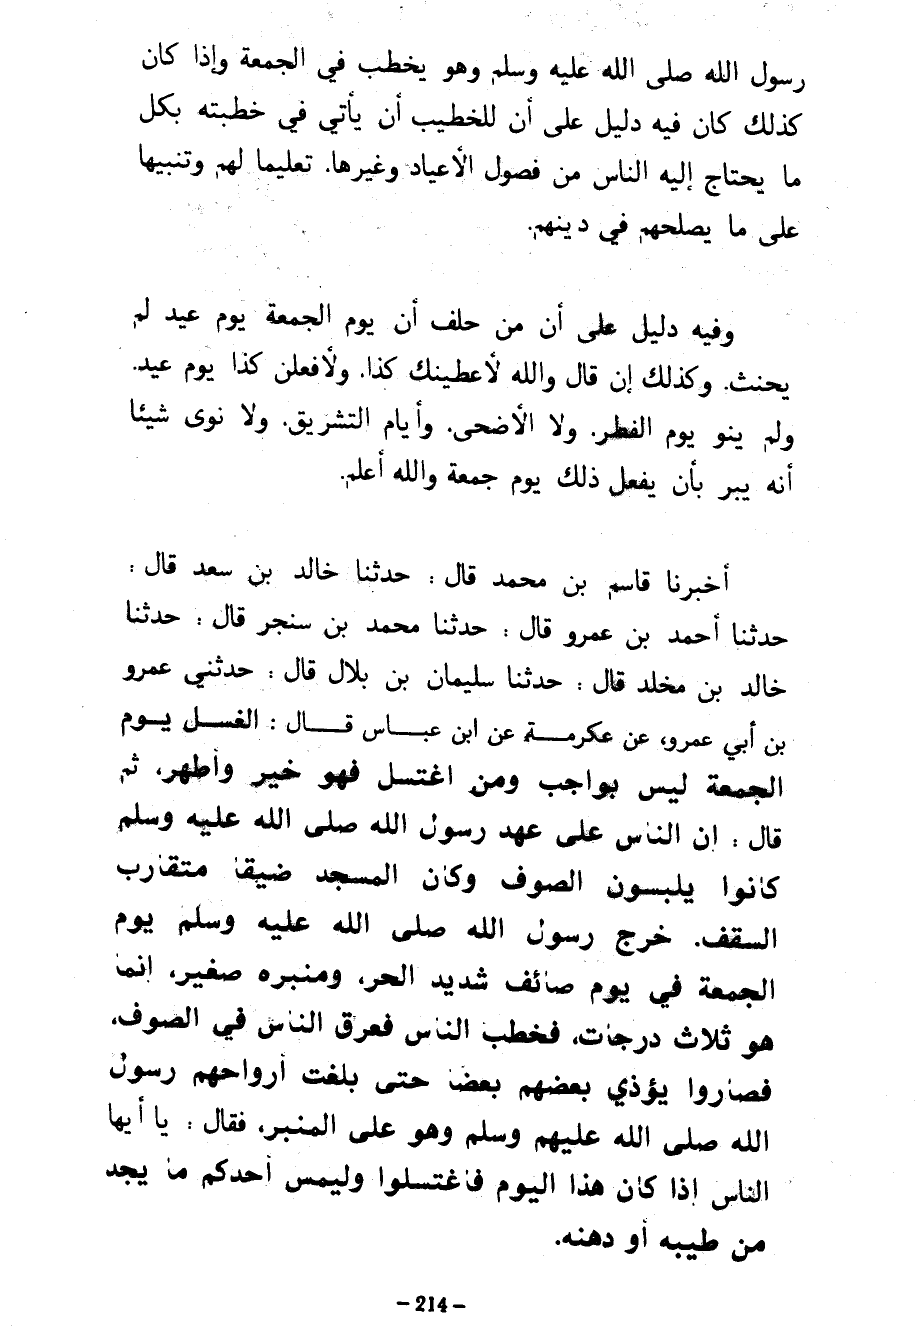 رسول الله صلى الله عليه وسلم وهو يخطب في الجمعة وإذا كان
كذلك كان فيه دليل على أن للخطيب أن يأتي في خطبته بكل
ما يحتاج إليه الناس من فصول الأعياد وغيرها. تعليما لهم وتنبيها
على ما يصلحهم في دينهم.
وفيه دليل على أن من حلف أن يوم الجمعة يوم عيد لم
يحنث. وكذلك إن قال والله لأعطينك كذا. ولأفعلن كذا يوم عيد.
ولم ينو يوم الفطر. ولا الأضحى. وأيام التشريق. ولا نوى شيئا
أنه يبر بأن يفعل ذلك يوم جمعة والله أعلم.
أخبرنا قاسم بن محمد قال : حدثنا خالد بن سعد قال :
حدثنا أحمد بن عمرو قال : حدثنا محمد بن سنجر قال : حدثنا
خالد بن مخلد قال : حدثنا سليمان بن بلال قال : حدثني عمرو
بن أبي عمرو، عن عكرمة عن ابن عباس قال : الغسل يوم
الجمعة ليس بواجب ومن اغتسل فهو خير وأطهر، ثم
قال : ان الناس على عهد رسول الله صلى الله عليه وسلم
كانوا يلبسون الصوف وكان المسجد ضيقا متقارب
السقف. خرج رسول الله صلى الله عليه وسلم يوم
الجمعة في يوم صائف شديد الحر، ومنبره صغير، انما
هو ثلاث درجات، فخطب الناس فعرق الناس في الصوف،
فصاروا يؤذي بعضهم بعضا حتى بلغت أرواحهم رسول
الله صلى الله عليهم وسلم وهو على المنبر، فقال : يا أيها
الناس إذا كان هذا اليوم فاغتسلوا وليمس أحدكم ما يجد
من طيبه أو دهنه.
– 214 –